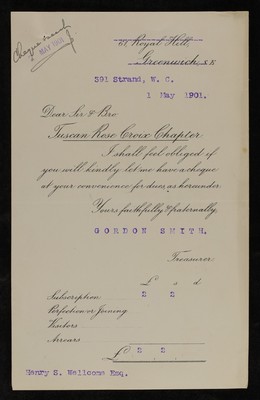 Cheque sent
MAY 1901
61 Royal Hill,
Greenwich, S.E
391 Strand, W. C.
1 May 1901.
Dear Sir & Bro
Tuscan Rose Croix Chapter
I shall feel obliged if
you will kindly let me have a cheque
at your convenience for dues, as hereunder.
Yours faithfully & fraternally,
GORDON SMITH,
Treasurer.
£ s d
Subscription 2 2
Perfection or Joining
Visitors
Arrears
£ 2 2
Henry S. Wellcome Esq.